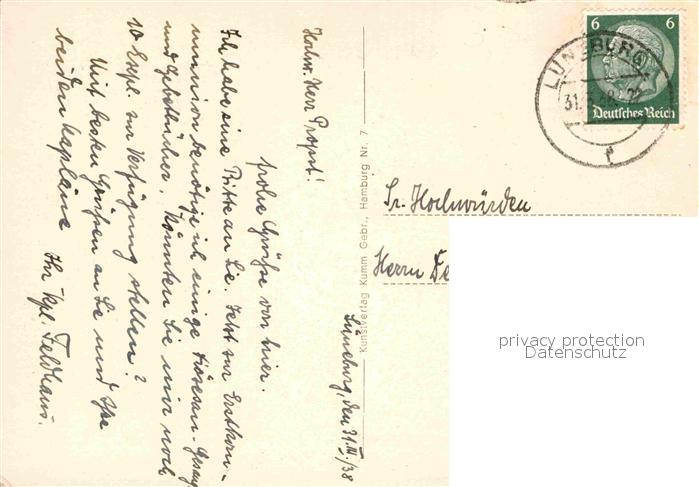 Lüneburg, den 31.III./38
Hochw. Herr Propst!
Frohe Grüße von hier.
Ich habe eine Bitte an Sie. Jetzt zur Erstkom-
munion benötige ich einige Diözesan-Gesang
und Gebetbücher. Könnten Sie mir noch
10 Expl. zur Verfügung stellen?
Mit besten Grüßen an Sie und Ihre
beiden Kapläne
Ihr Kpl. Feldhaus.
Kunstverlag Kumm Gebr., Hamburg Nr. 7
6 6
Deutsches Reich
LÜNEBURG
31.3.38
f
Sr. Hochwürden
Herrn De
privacy protection
Datenschutz